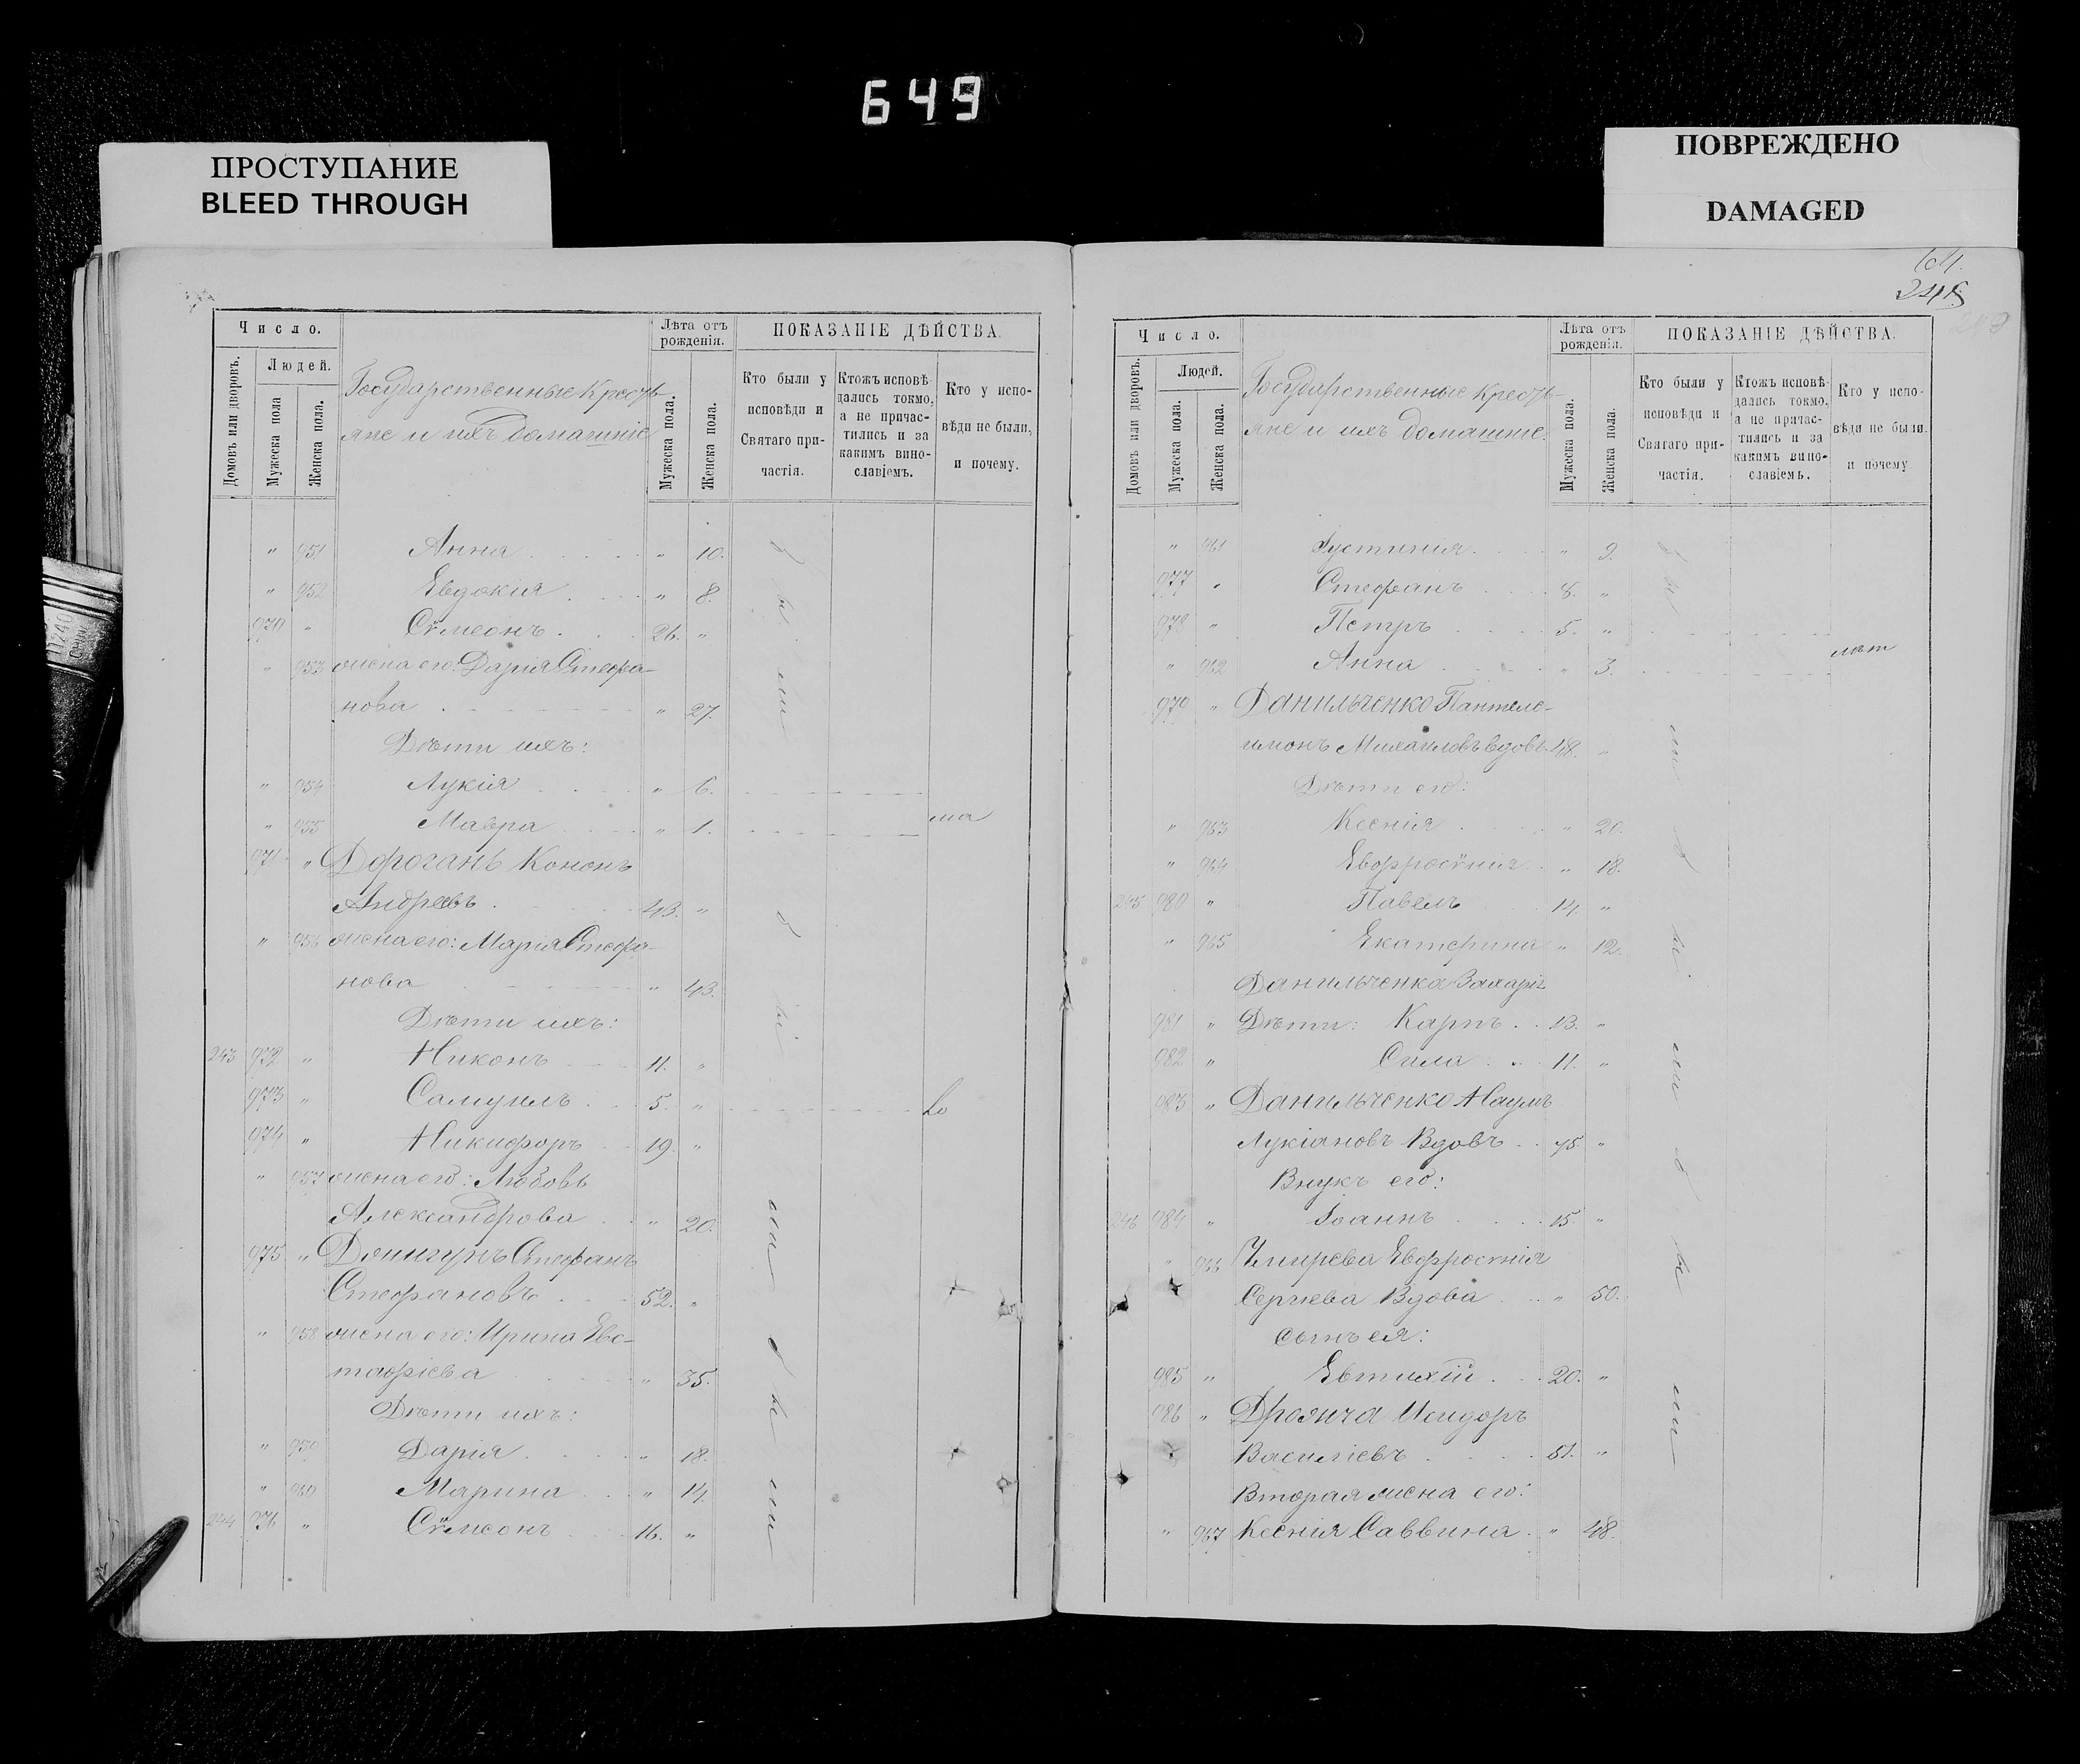 649
ПРОСТУПАНИЕ
BLEED THROUGH
ПОВРЕЖДЕНО
DAMAGED
Число.
Людей.
Домовъ или дворовъ.
Мужеска пола
Женска пола.
Государственные Кресть-
яне и ихъ домашніе
Лѣта отъ рожденія.
Мужеска пола.
Женска пола.
ПОКАЗАНІЕ ДѢЙСТВА.
Кто были у исповѣди и Святаго при-частія.
Ктожъ исповѣ-дались токмо, а не причас-тились и за какимъ вино-славіемъ.
Кто у испо-вѣди не были, и почему.
" 951 Анна " 10.
" 952 Евдокія " 8.
970 " Сѵмеонъ 26. "
" 953 жена его: Дарія Стефа-
нова " 27.
Дѣти ихъ:
" 954 Лукія " 6.
" 955 Мавра " 1. ма
971 " Дорогань Кононъ
Андреевъ 43. "
" 956 жена его: Марія Стефа-
нова " 43.
Дѣти ихъ:
243 972 " Никонъ 11. "
973 " Самуилъ 5. "
974 " Никифоръ 19. "
" 957 жена его: Любовь
Александрова " 20.
975 " Стефанъ
Стефановъ 52. "
" 958 жена его: Ирина Евс-
тафіева " 35.
Дѣти ихъ:
" 959 Дарія " 18.
" 960 Марина " 14.
244 976 " Сѵмеонъ 16. "
были
были
были
64.
Число.
Людей.
Домовъ или дворовъ.
Мужеска пола.
Женска пола.
Государственные Кресть-
яне и ихъ домашніе.
Лѣта отъ рожденія.
Мужеска пола.
Женска пола.
ПОКАЗАНІЕ ДѢЙСТВА.
Кто были у исповѣди и Святаго при-частія.
Ктожъ исповѣ-дались токмо, а не причас-тились и за какимъ вино-славіемъ.
Кто у испо-вѣди не были. и почему.
" 961 Іустинія " 9.
977 " Стефанъ 8. "
978 " Петръ 5. "
" 962 Анна " 3. лѣт
979 " Данильченко Пантеле-
имонъ Михаиловъ вдовъ 48. "
Дѣти его:
" 963 Ксенія " 20.
" 964 Евфросѵнія " 18.
245 980 " Павелъ 14. "
" 965 Екатерина " 12.
Данильченка Захарія
981 " Дѣти: Карпъ 13. "
982 " Сила 11. "
983 " Данильченко Наумъ
Лукіановъ Вдовъ 75. "
Внукъ его:
246 984 " Іоаннъ 15. "
" 966 Евфросѵнія
Сергіева Вдова " 50.
Сынъ ея:
985 " Евтихій 20. "
986 " Исидоръ
Василіевъ 51. "
Вторая жена его:
" 967 Ксенія Саввина " 48.
были
были
были